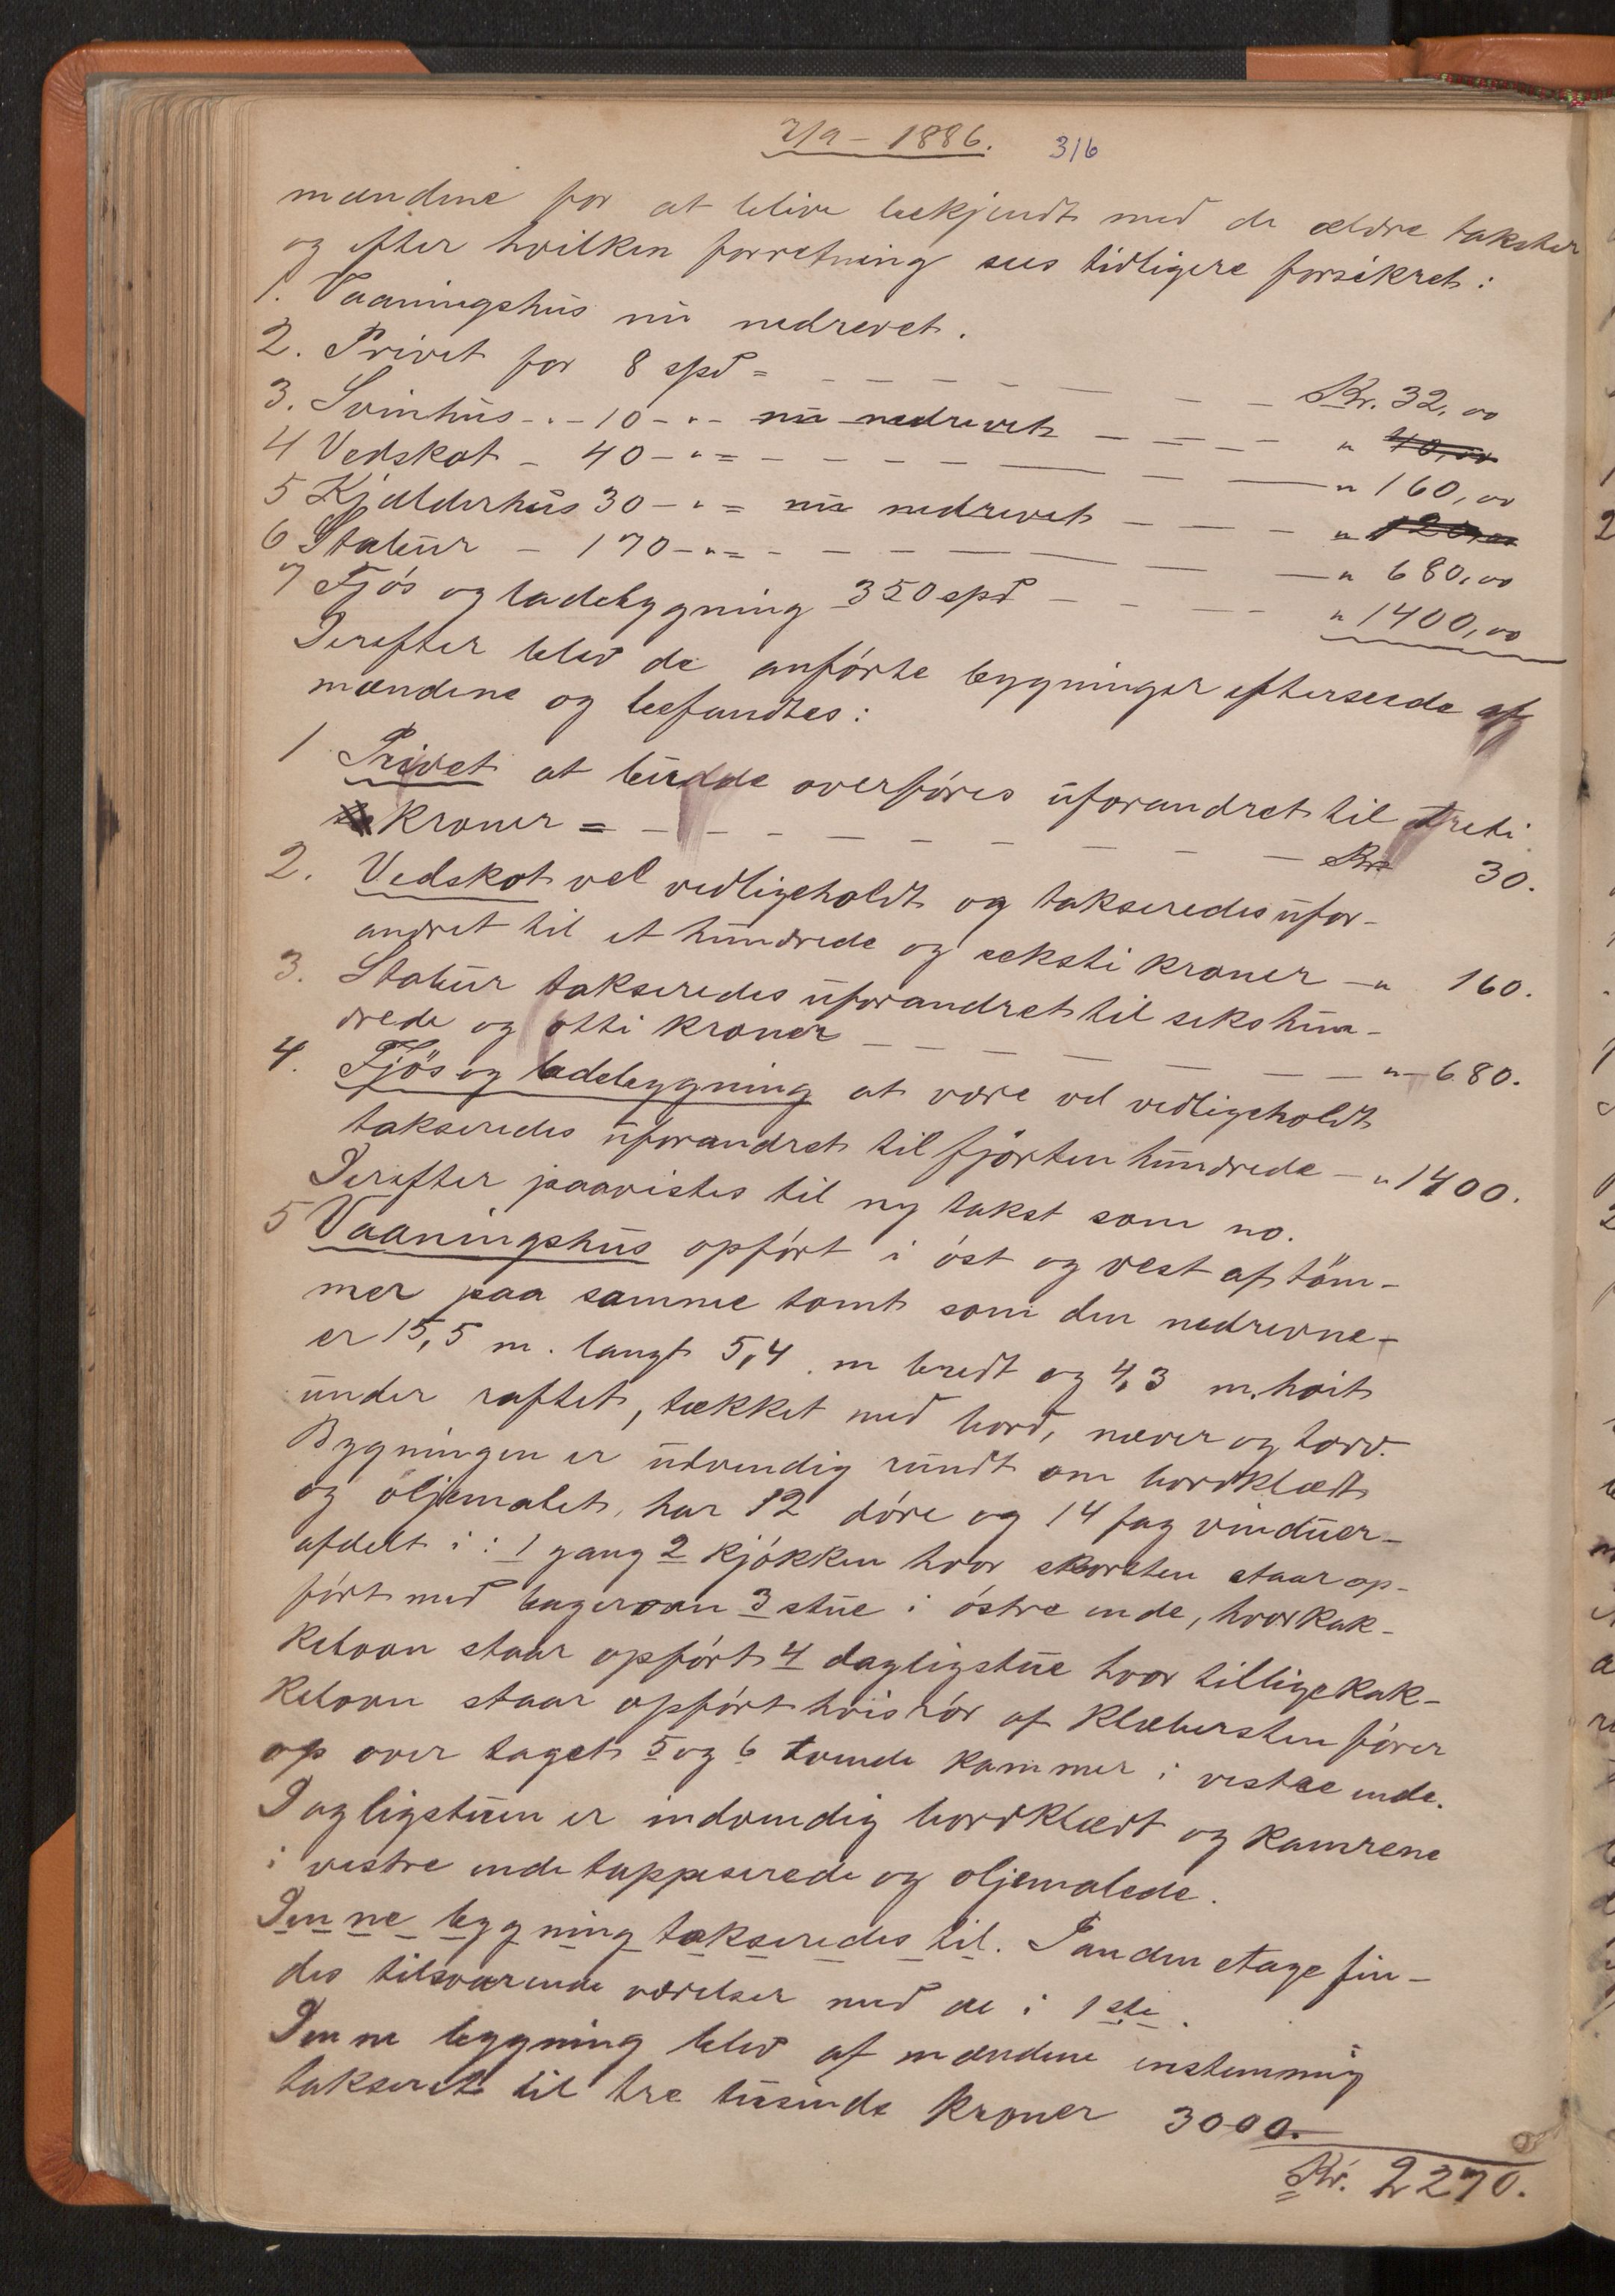 2/9 – 1886. 316
mændene for at blive bekjendt med de ældre takster
og efter hvilken forretning sees tidligere forsikret:
1. Vaaningshus nu nedrevet.
2. Privet for 8 spd = – – – – — – – Kr. 32,00
3. Svinhus - „ - 10 - „ - nu nedrevet – – – – „ 40,00
4 Vedskot – 40 – „ = – – – – — – — „ 160,00
5 Kjælderhus 30 – „ = nu nedrevet – – – – „ 120,00
6 Stabur – 170 – „ = – – – — — – — „ 680,00
7 Fjós og ladebygning 350 spd – – – – „ 1400,00
Derefter blev de anförte bygninger efterseede af
mændene og befandtes:
1 Privet at burde overföres uforandret til treti
kroner = – – – – – – – – Kr 30.
2. Vedskot vel vedligeholdt og takseredes ufor-
andret til et hundrede og seksti kroner – „ 160.
3. Stabur takseredes uforandret til sekshun-
drede og otti kroner – – – – – – – „ 680.
4. Fjös og ladebygning at være vel vedligeholdt
takseredes uforandret til fjörten hundrede – „ 1400.
Derefter paavistes til ny takst som no.
5 Vaaningshus opfört i óst og vest af töm-
mer paa samme tomt som den nedrevne –
er 15,5 m. langt 5,4 m bredt og 4,3 m. hóit
under raftet, tækket med bord, næver og torv.
Bygningen er udvendig rundt om bordklædt
og oljemalet, har 12 döre og 14 fag vinduer –
afdelt i: 1 gang 2 kjökken hvor skorsten staar op-
fört med bagerovn 3 stue i östre ende, hvor kak-
kelovn staar opfört 4 dagligstue hvor tillige kak-
kelovn staar opfört hvis rör af klæbersten förer
op over taget 5 og 6 tvende kammer i vestre ende.
Dagligstuen er indvendig bordklædt og kamrene
i vestre ende tappeserede og oljemalede.
Denne bygning takseredes til. I anden etage fin-
des tilsvarende værelser med de i 1ste.
Denne bygning blev af mændene enstemmig
takseret til tre tusinde kroner 3000.
Kr. 2270.